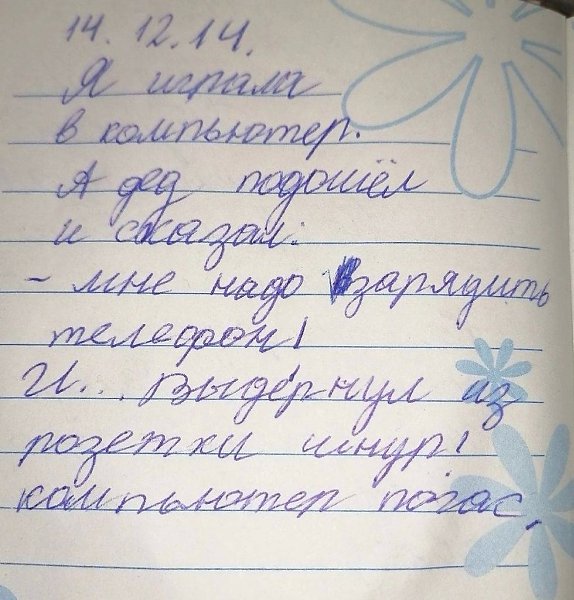 14.12.14.
Я играла
в компьютер.
А дед подошёл
и сказал:
- мне надо зарядить
телефон!
И... Выдернул из
розетки шнур!
компьютер погас,